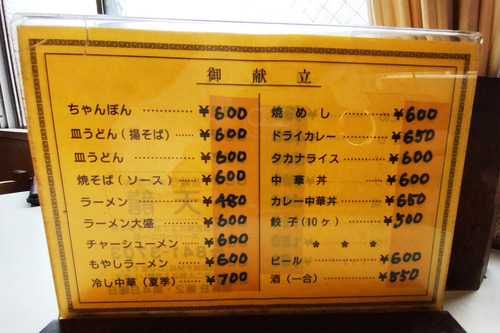 御献立
ちゃんぽん ………… ¥600
皿うどん(揚そば) …… ¥600
皿うどん ………… ¥600
焼そば(ソース) …… ¥600
ラーメン ………… ¥480
ラーメン大盛 ……… ¥600
チャーシューメン …… ¥600
もやしラーメン …… ¥600
冷し中華(夏季) …… ¥700
焼めし ………… ¥600
ドライカレー ……… ¥650
タカナライス ……… ¥600
中華丼 ………… ¥600
カレー中華丼 …… ¥650
餃子(10ヶ) …… ¥500
* * *
ビール ………… ¥600
酒(一合) …… ¥550